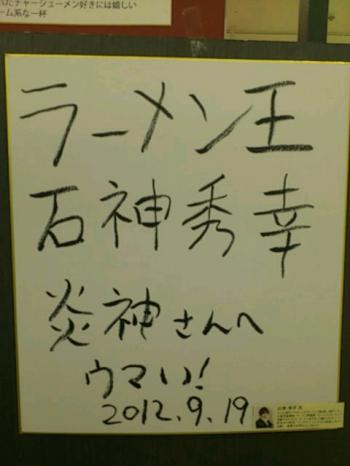 チャーシューメン好きには嬉しい
ーム系な一杯
ラーメン王
石神秀幸
炎神さんへ
ウマい!
2012.9.19